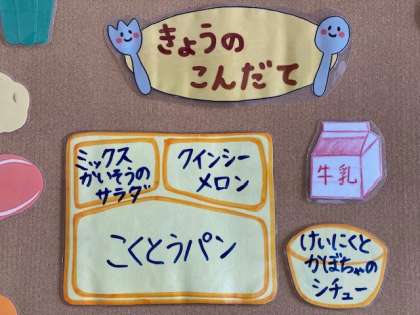 きょうの
こんだて
ミックス
かいそうの
サラダ
クインシー
メロン
こくとうパン
牛乳
けいにくと
かぼちゃの
シチュー